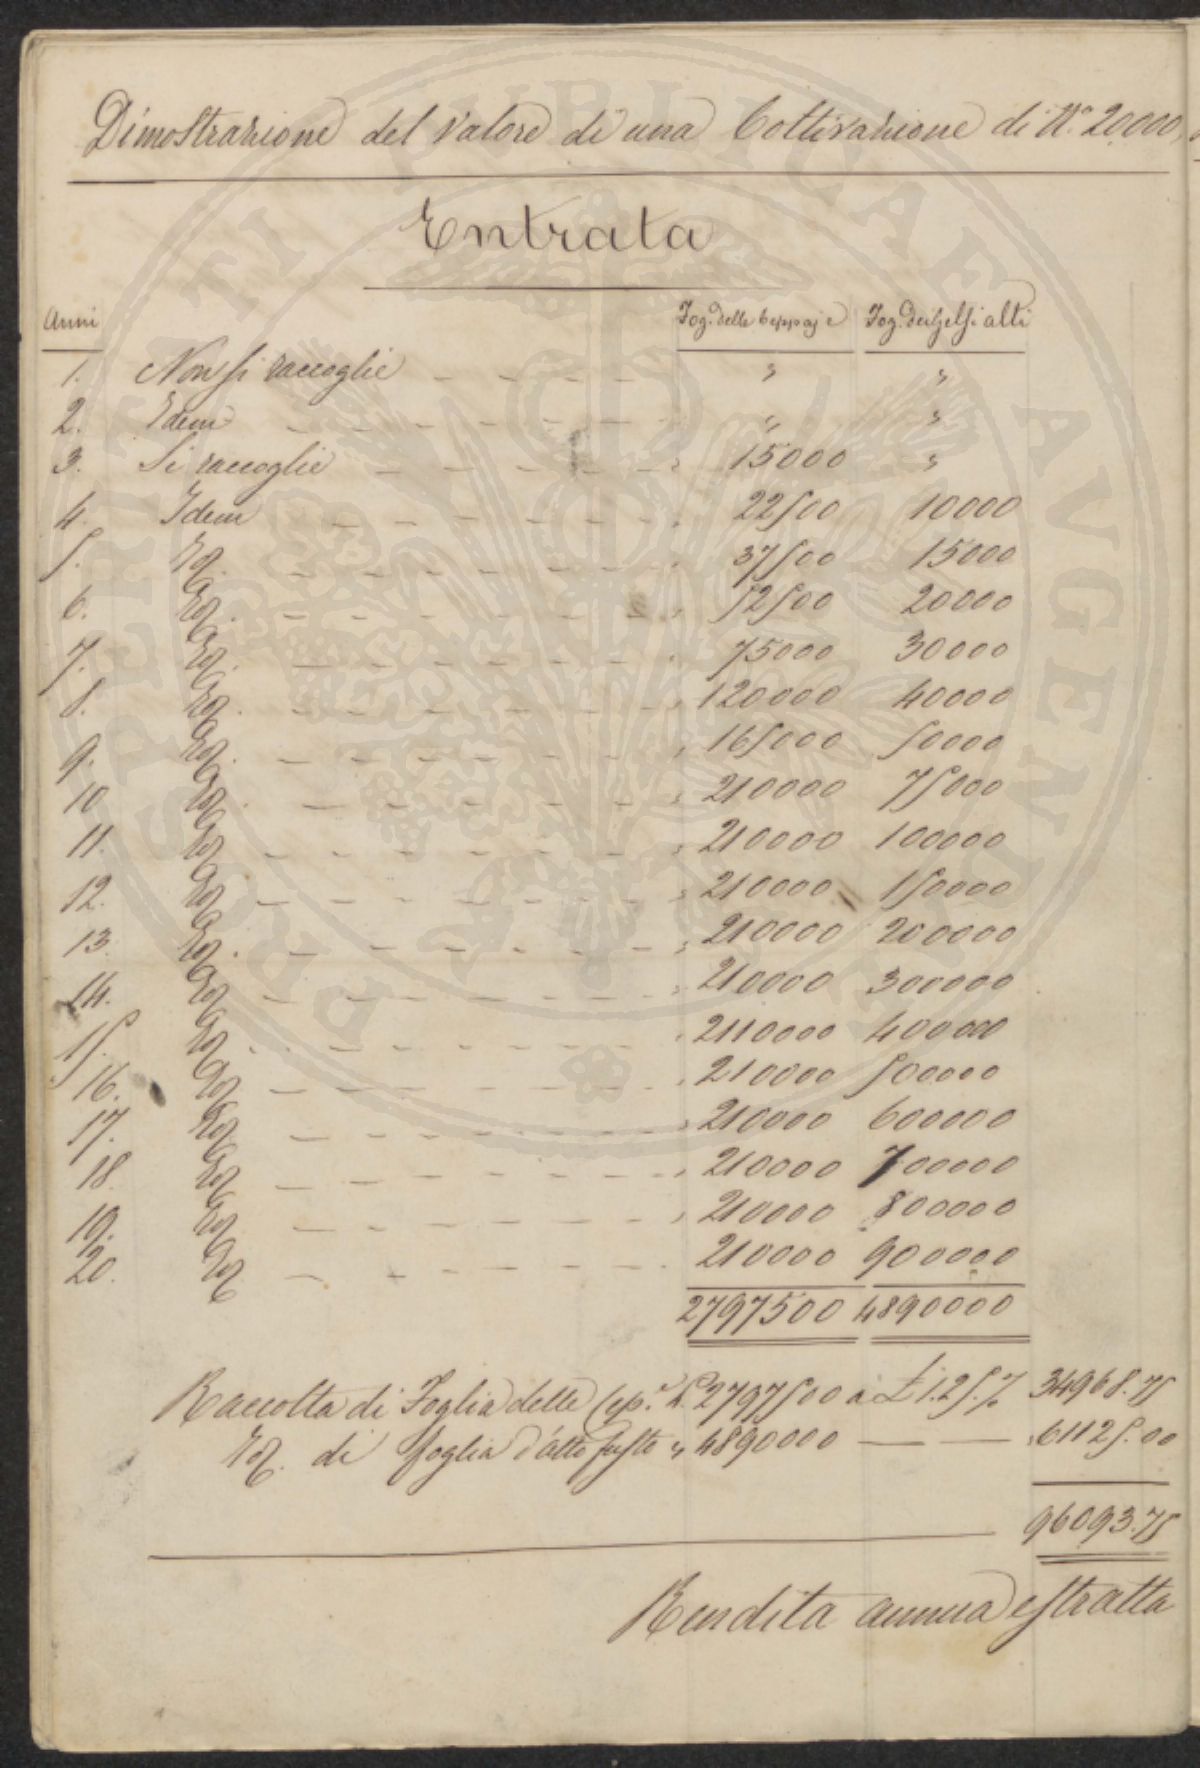 Dimostrazione del Valore di una Coltivazione di N.o 20.000,
Entrata
Anni Fog. delle Ceppaje Fog. dei Gelsi alti
1. Non si raccoglie — — — — — — " "
2. Idem — — — — — — — " "
3. Si raccoglie — — — — — — " 15000 "
4. Idem — — — — — — — " 22500 10000
5. Id. — — — — — — — " 37500 15000
6. Id. — — — — — — — " 52500 20000
7. Id. — — — — — — — " 75000 30000
8. Id. — — — — — — — " 120000 40000
9. Id. — — — — — — — " 165000 50000
10 Id. — — — — — — — " 210000 75000
11. Id — — — — — — — " 210000 100000
12. Id — — — — — — — " 210000 150000
13. Id. — — — — — — — " 210000 200000
14. Id — — — — — — — " 210000 300000
15. Id. — — — — — — — " 2110000 400000
16. Id — — — — — — — " 210000 500000
17. Id — — — — — — — " 210000 600000
18. Id — — — — — — — " 210000 700000
19. Id — — — — — — — " 210000 800000
20. Id — — — — — — — 210000 900000
2797500 4890000
Raccolta di Foglia delle Cep.e L. 2797500 a £ 1.25.% 34968.75
Id. di foglia d'alto fusto " 4890000 — — " 61125.00
96093.75
Rendita annua estratta